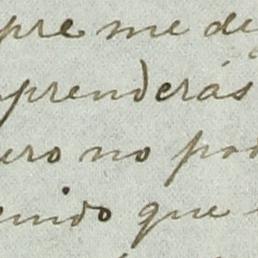 pre me de
prenderás
ero no pod
enido que